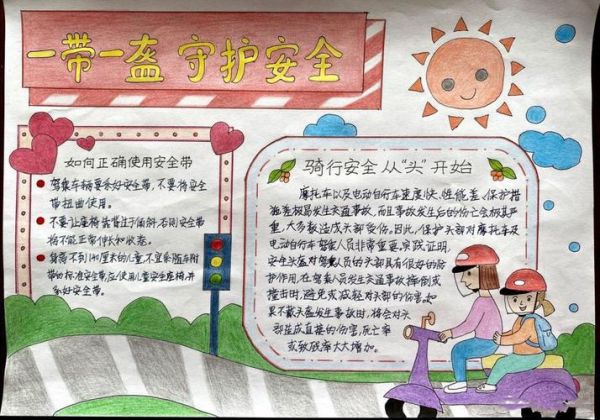 一带一盔 守护安全
如何正确使用安全带
驾乘车辆要系好安全带,不要将安全
带扭曲使用。
不要让座椅靠背过于倾斜,否则安全带
将不能正常伸长和收卷。
身高不到140厘米的儿童,不宜系随车附
带的标准安全带,应使用儿童安全座椅并
系好安全带。
骑行安全 从“头”开始
摩托车以及电动自行车速度快、性能差、保护措
施差极易发生交通事故,而且事故发生后的伤亡会极其严
重,大多数造成头部受伤。因此,保护头部对摩托车及
电动自行车驾驶人员非常重要,实践证明,
安全头盔对驾驶人员的头部具有很好的防
护作用,在驾驶人员发生交通事故摔倒或
撞击时,避免或减轻对头部的伤害。如
果不戴头盔发生事故时,将会对头
部造成直接的伤害,死亡率
或致残率大大增加。